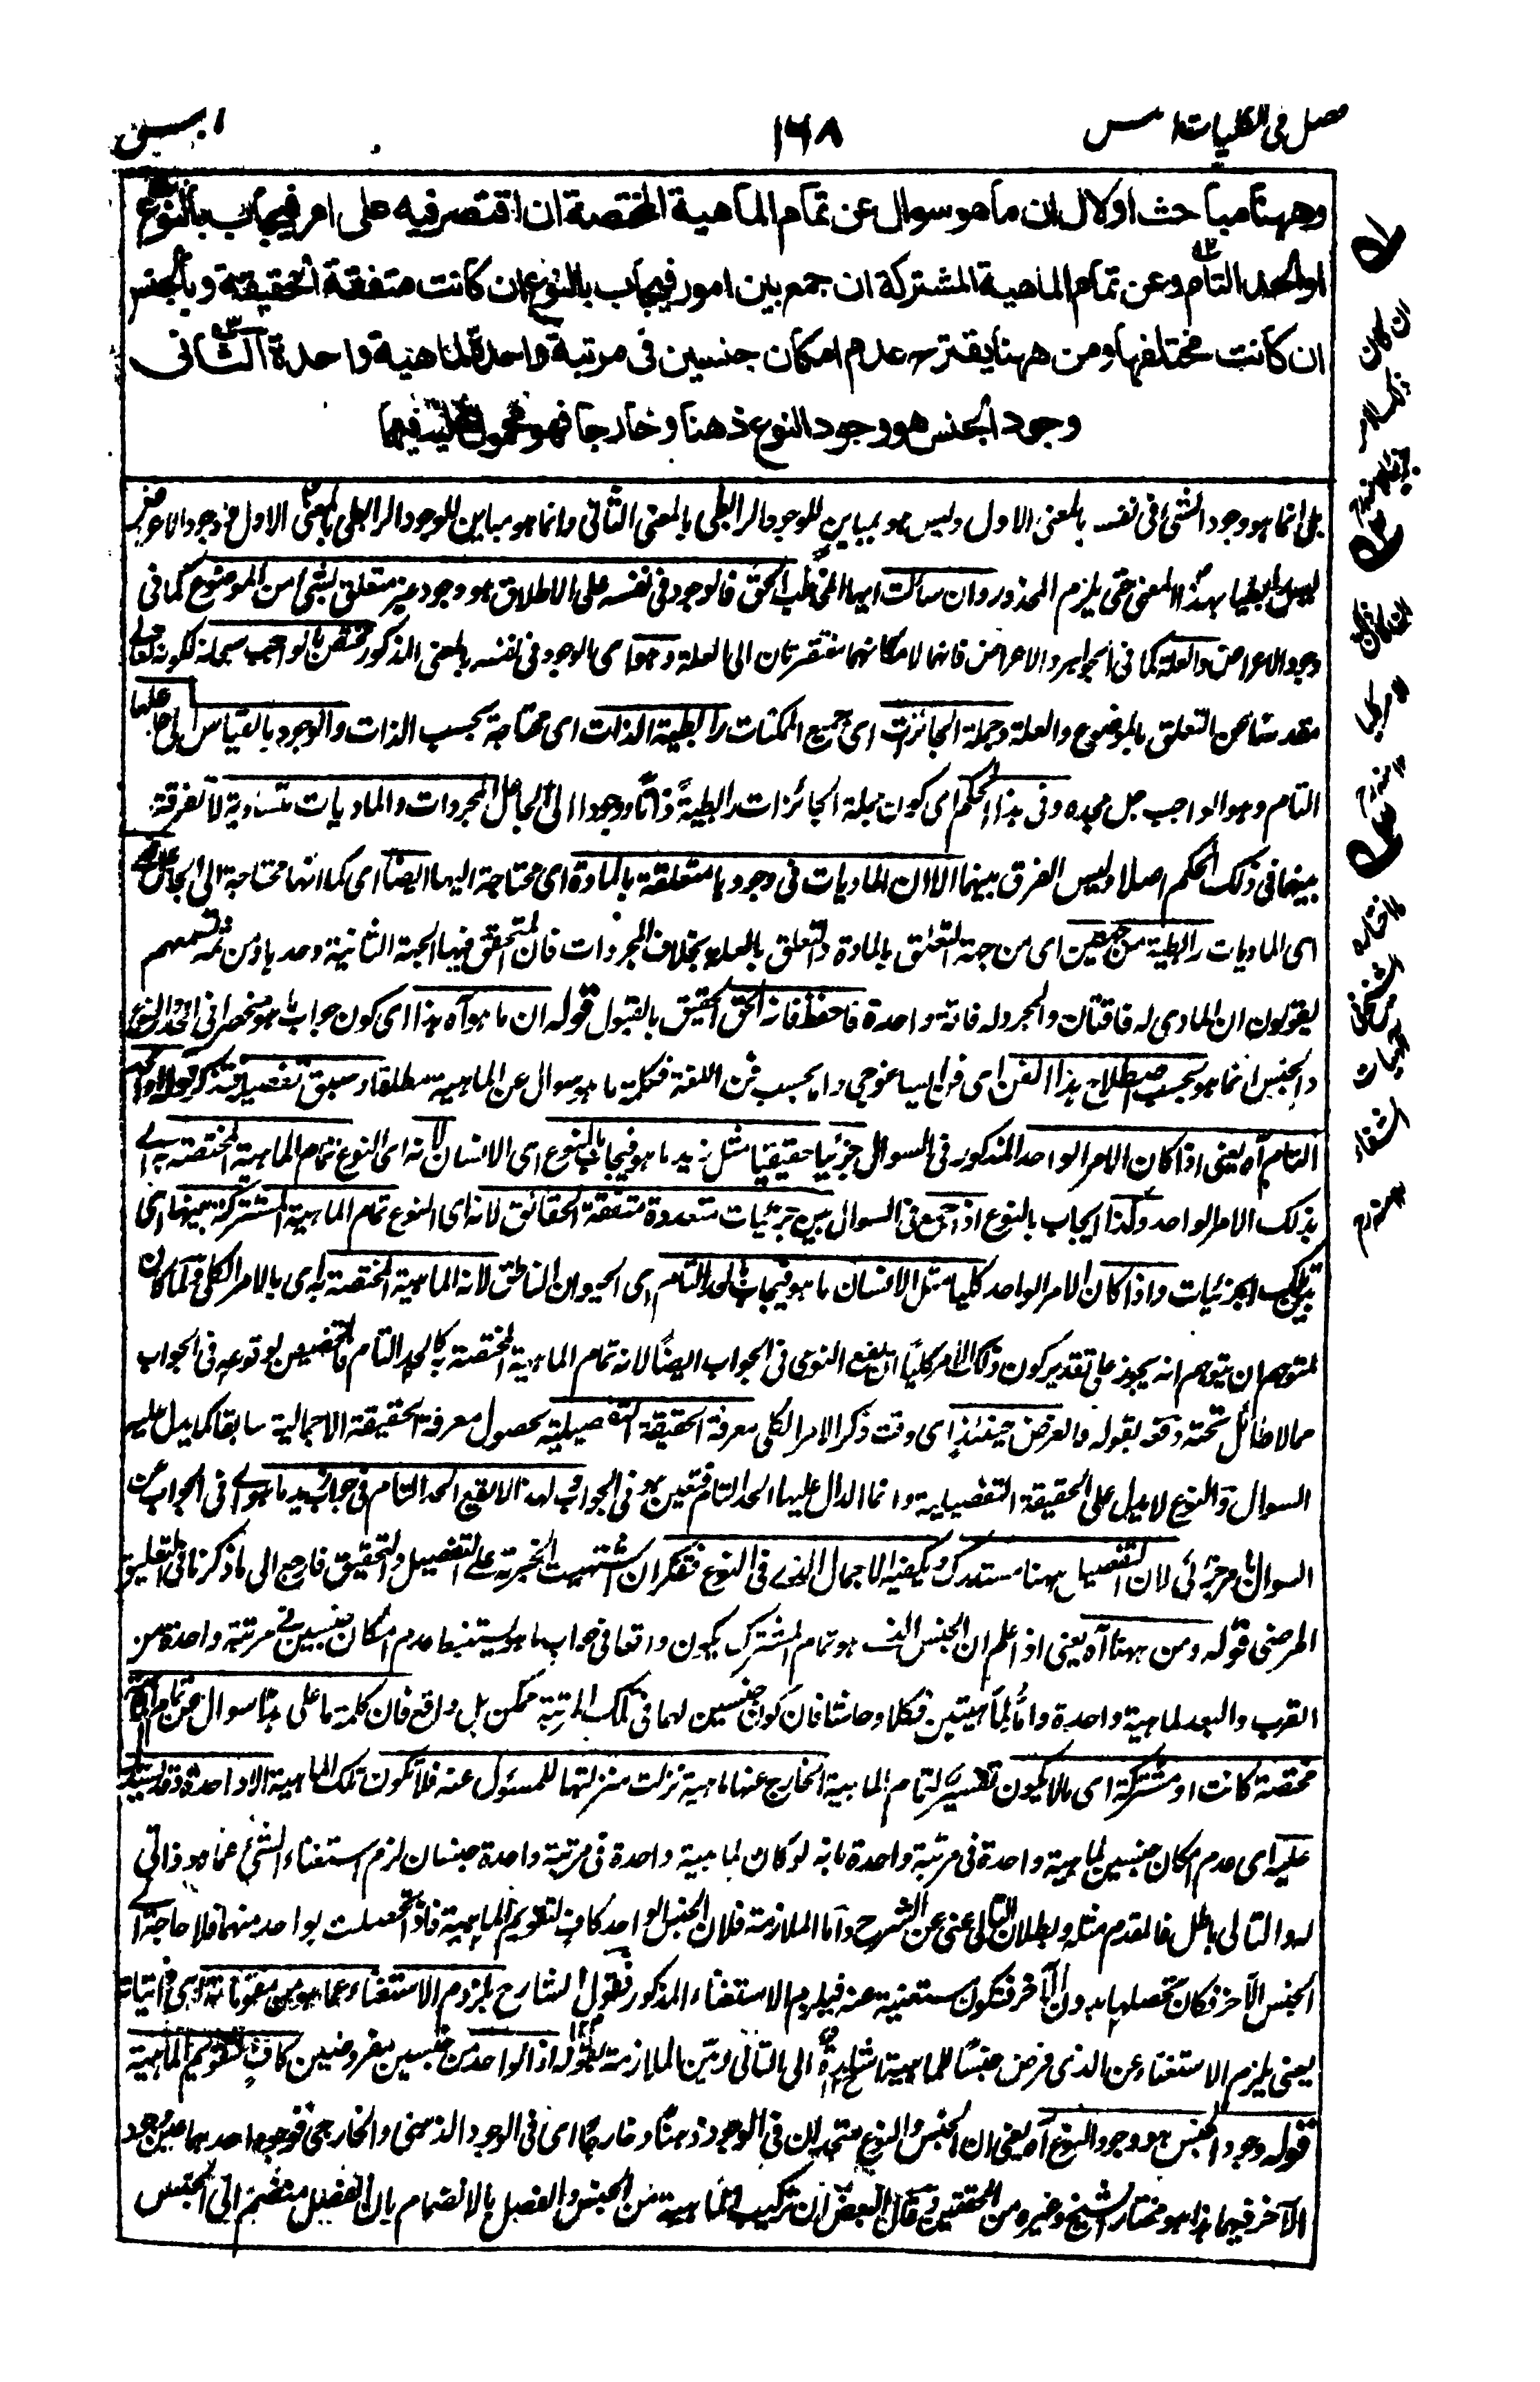 فصل في الكليات
١٦٨
وههنا مباحث الاول ان ما هو سوال عن تمام الماهية المختصة ان اقتصر فيه على امر فيجاب بالنوع
او الحد التام وعن تمام الماهية المشتركة ان جمع بين امور فيجاب بالنوع ان كانت متفقة الحقيقة وبالجنس
ان كانت مختلفها ومن ههنا يقترح عدم امكان جنسين في مرتبة واحدة لماهية واحدة الثاني
وجود الجنس هو وجود النوع ذهنا وخارجا فهو محمول عليه فيهما
بل انما هو وجود الشيء في نفسه بالمعنى الاول وليس هو بمباين للوجود الرابطي بالمعنى الثاني وانما هو مباين للوجود الرابطي بالمعنى الاول فوجود الاعراض
ليس رابطيا بهذا المعنى حتى يلزم المحذور وان سألت ايها المخاطب الحق فالوجود في نفسه على الاطلاق هو وجود غير متعلق بشيء من الموضوع كما في
وجود الاعراض والعلة كما في الجواهر والاعراض فانهما لامكانهما مفتقرتان الى العلة وهو اى الوجود في نفسه بالمعنى المذكور مختص بالواجب سبحانه لكونه تعالى
مقدسا عن التعلق بالموضوع والعلة وجملة الجائزات اى جميع الممكنات رابطية الذات اى محتاجة بحسب الذات والوجود بالقياس الى جاعلها
التام وهو الواجب جل مجده وفى هذا الحكم اى كون جملة الجائزات رابطية ذاتا ووجودا الى الجاعل المجردات والماديات متساوية لا تفرقة
بينهما في ذلك الحكم اصلا وليس الفرق بينهما الا ان الماديات في وجودها متعلقة بالمادة اى محتاجة اليها ايضا اى كما انها محتاجة الى الجاعل
اى الماديات رابطية من جهتين اى من جهة التعلق بالمادة والتعلق بالعلة بخلاف المجردات فان المتحقق فيها الجهة الثانية وحدها ومن ثمه تسمعهم
يقولون ان المادى له فاقتان والمجرد له فاقة واحدة فاحفظ فانه الحق الحقيق بالقبول قوله ان ما هو آه هذا اى كون جواب ما هو منحصرا في الحد والنوع
والجنس انما هو بحسب اصطلاح هذا الفن اى فن ايساغوجى واما بحسب فن اللغة فكلمة ما هو سوال عن الماهية مطلقا وسبق تفصيله فتذكر قوله او الحد
التام آه يعنى اذا كان الامر الواحد المذكور في السوال جزئيا حقيقيا مثل زيد ما هو فيجاب بالنوع اى الانسان لانه اى النوع تمام الماهية المختصة به اى
بذلك الامر الواحد وكذا يجاب بالنوع اذا جمع في السوال بين جزئيات متعددة متفقة الحقائق لانه اى النوع تمام الماهية المشتركة بينها اى
بين تلك الجزئيات واذا كان الامر الواحد كليا مثل الانسان ما هو فيجاب بالحد التام اى الحيوان الناطق لانه الماهية المختصة به اى بالامر الكلى ولما كان
لمتوهم ان يتوهم انه يجوز على تقدير كون ذلك الامر كليا ان يقع النوع في الجواب ايضا لانه تمام الماهية المختصة به كالحد التام فالتخصيص بوقوعه في الجواب
مما لا طائل تحته دفعه بقوله والغرض حينئذ اى وقت ذكر الامر الكلى معرفة الحقيقة التفصيلية لحصول معرفة الحقيقة الاجمالية سابقا كما يدل عليه
السوال والنوع لا يدل على الحقيقة التفصيلية وانما الدال عليها الحد التام فتعين هو في الجواب ولهذا لا يقع الحد التام في جواب زيد ما هو اى في الجواب عن
السوال بامر جزئى لان التفصيل ههنا مستدرك ويكفيه الاجمال الذى في النوع فتفكر ان اشتهيت الخبرة على التفصيل والتحقيق فارجع الى ما ذكرنا في التعليق
المرضى قوله ومن ههنا آه يعنى اذ اعلم ان الجنس الذى هو تمام المشترك يكون واقعا في جواب ما هو يستنبط عدم امكان جنسين في مرتبة واحدة من
القرب والبعد لماهية واحدة واما لماهيتين فكلا وحاشا فان كون جنسين لهما في تلك المرتبة ممكن بل واقع فان كلمة ما على هذا سوال عن تمام الماهية
مختصة كانت او مشتركة اى ما لا يكون تفسير لتمام الماهية الخارج عنها ماهية نزلت منزلتها للمسئول عنه فلا تكون تلك الماهية الا واحدة وقد يستدل
عليه اى عدم امكان جنسين لماهية واحدة في مرتبة واحدة بانه لو كان لماهية واحدة في مرتبة واحدة جنسان لزم استغناء الشيء عما هو ذاتى
له والتالى باطل فالمقدم مثله وبطلان التالى غنى عن الشرح واما الملازمة فلان الجنس الواحد كاف لتقويم الماهية فاذا تحصلت بواحد منهما فلا حاجة الى
الجنس الآخر فكان تحصلها بدون الآخر فتكون مستغنية عنه فيلزم الاستغناء المذكور فقول الشارح يلزم الاستغناء عما هو من مقوماته اى ذاتياته
يعنى يلزم الاستغناء عن الذى فرض جنسا للماهية اشارة الى التالى وبين الملازمة بقوله اذ الواحد من جنسين مفروضين كاف لتقويم الماهية
قوله وجود الجنس هو وجود النوع آه يعنى ان الجنس والنوع متحدان في الوجود ذهنا وخارجا اى في الوجود الذهنى والخارجى فوجود احدهما عين وجود
الآخر فيهما هذا هو مختار الشيخ وغيره من المحققين وقال البعض ان تركيب الماهية من الجنس والفصل بالانضمام بان الفصل منضم الى الجنس